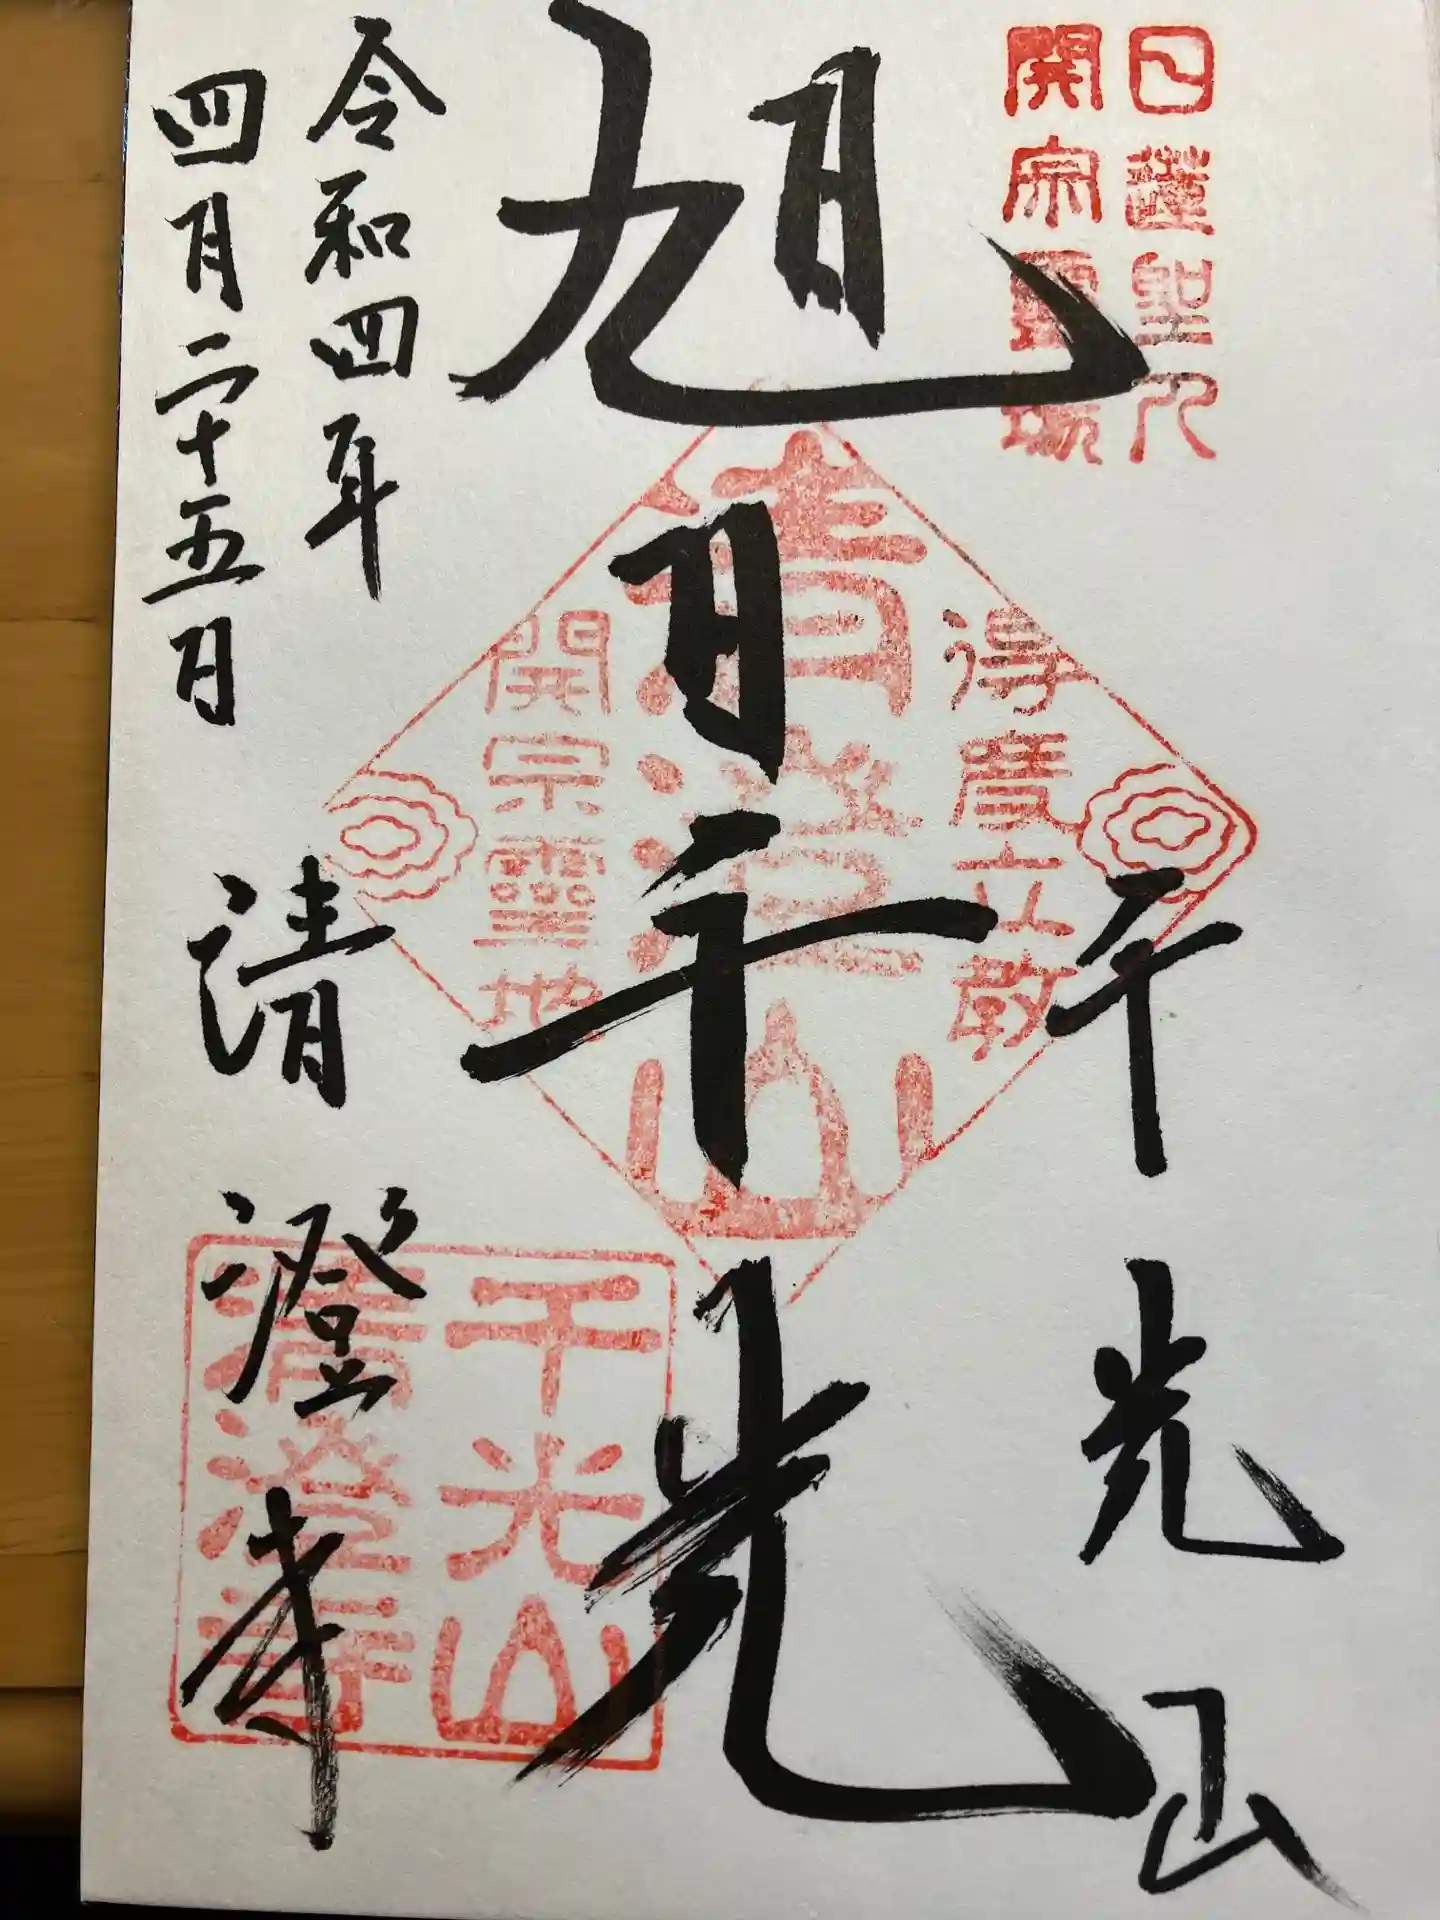 日蓮聖人
開宗霊場
千光山
旭日千光
得度立教
清澄山
開宗霊地
令和四年
四月二十五日
清澄寺
千光山
清澄寺